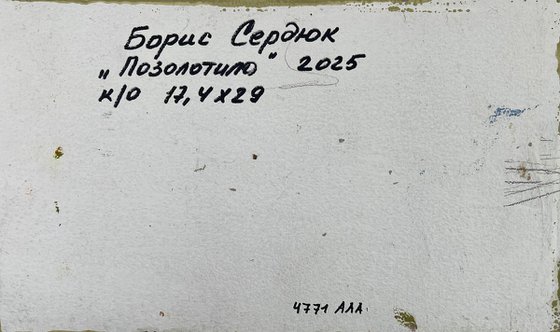 Борис Сердюк
„Позолотило" 2025
к/о 17,4х29
4771 АЛА